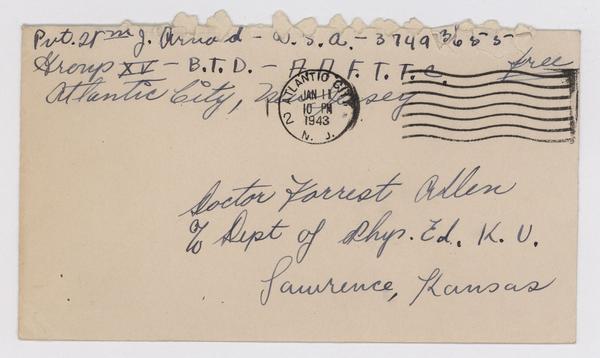 Pvt. Wm J. Arnold - U.S.A. - 37493655
Group XV - B.T.D. - A.A.F.T.T.C. free
Atlantic City, New Jersey
ATLANTIC CITY
2
JAN 11
10 PM
1943
N. J.
Doctor Forrest Allen
c/o Dept of Phys. Ed. K. U.
Lawrence, Kansas